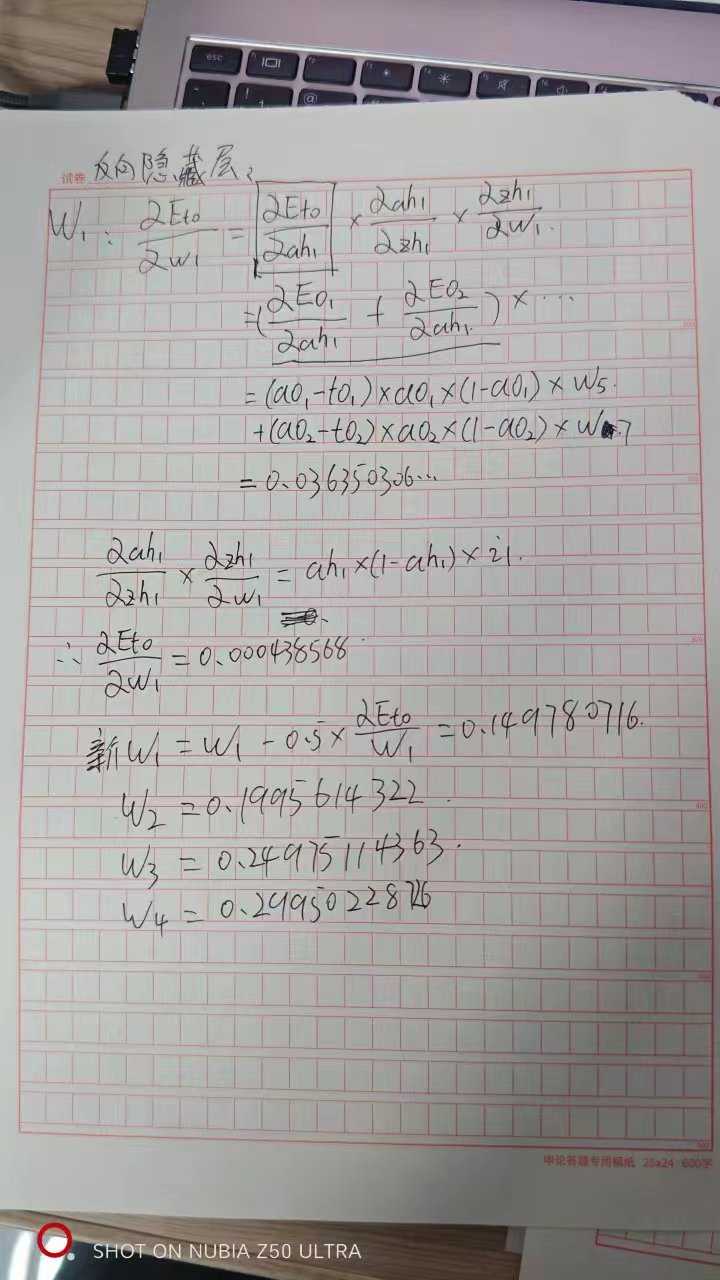 esc
试卷 反向隐藏层、
W₁: ∂Eto/∂w₁ = ∂Eto/∂ah₁ × ∂ah₁/∂zh₁ × ∂zh₁/∂w₁.
=(∂Eo₁/∂ah₁ + ∂Eo₂/∂ah₁) × ⋯
= (ao₁-to₁)×ao₁×(1-ao₁)×W₅.
+(ao₂-to₂)×ao₂×(1-ao₂)×W₇
= 0.036350306⋯
∂ah₁/∂zh₁ × ∂zh₁/∂w₁ = ah₁×(1-ah₁)×i1.
∴ ∂Eto/∂w₁ = 0.000438568.
新W₁ = W₁ - 0.5× ∂Eto/W₁ = 0.149780716.
W₂ = 0.1995614322.
W₃ = 0.24975114363.
W₄ = 0.2995022876
申论答题专用稿纸 25x24 600字
SHOT ON NUBIA Z50 ULTRA